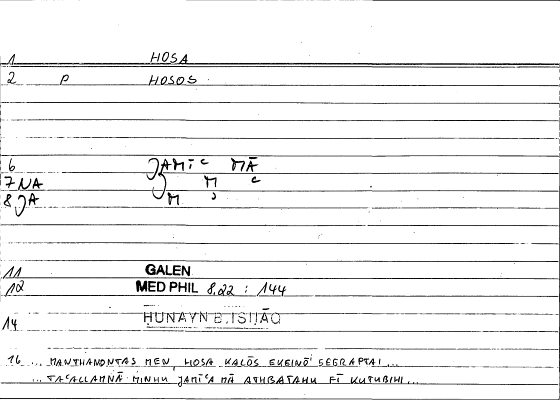 1 HOSA
2 P HOSOS
6 ǦAMĪᶜ MĀ
7 NA Ǧ M ᶜ
8 ǦA M
11 GALEN
12 MED PHIL 8,22 : 144
14 HUNAYN B. ISḤĀQ
16 ... MANTHANONTAS MEN, HOSA KALŌS EKEINŌⁱ GEGRAPTAI ...
... TAᶜALLAMNĀ MINHU ǦAMĪᶜA MĀ ATHBATAHU FĪ KUTUBIHI ...